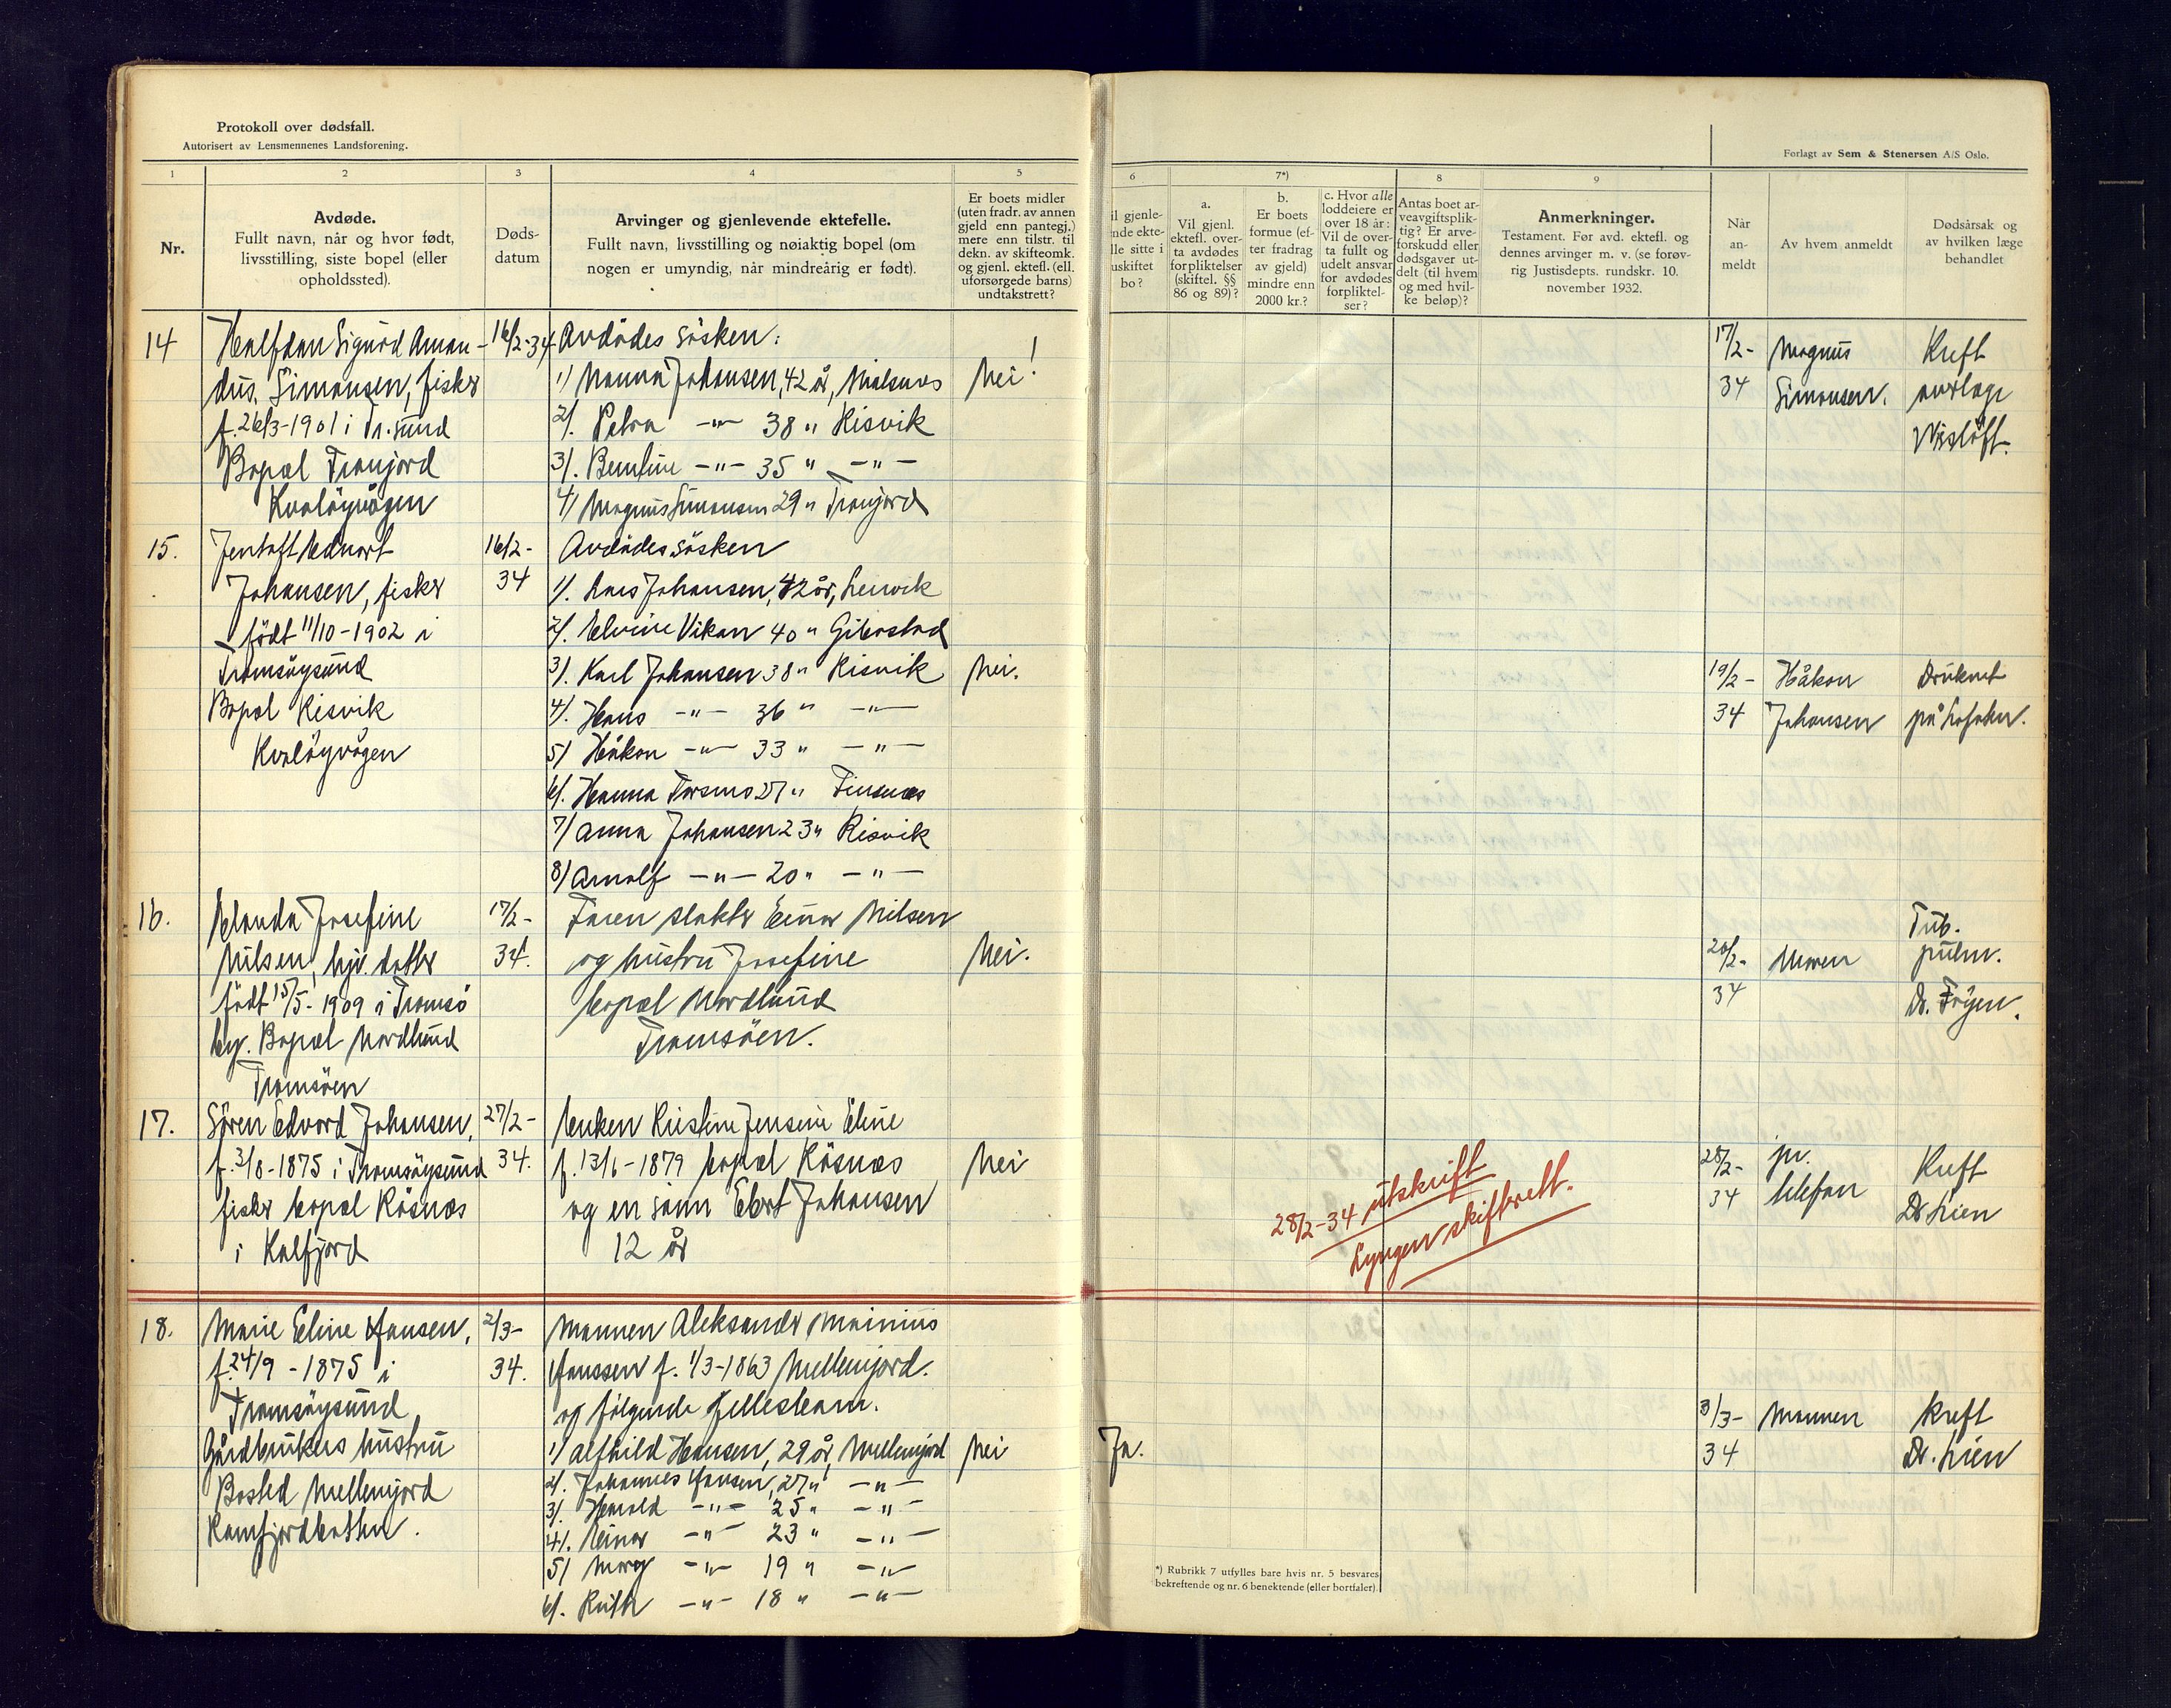 Protokoll over dødsfall.
Autorisert av Lensmennenes Landsforening.
Forlagt av Sem & Stenersen A/S Oslo.
1
2
3
4
5
6
7*)
8
9
Nr.
Avdøde.
Fullt navn, når og hvor født,
livsstilling, siste bopel (eller
opholdssted).
Døds-
datum
Arvinger og gjenlevende ektefelle.
Fullt navn, livsstilling og nøiaktig bopel (om
nogen er umyndig, når mindreårig er født).
Er boets midler
(uten fradr. av annen
gjeld enn pantegj.)
mere enn tilstr. til
dekn. av skifteomk.
og gjenl. ektefl. (ell.
uforsørgede barns)
undtakstrett?
il gjenle-
nde ekte-
lle sitte i
uskiftet
bo?
a.
Vil gjenl.
ektefl. over-
ta avdødes
forpliktelser
(skiftel. §§
86 og 89)?
b.
Er boets
formue (ef-
ter fradrag
av gjeld)
mindre enn
2000 kr.?
c. Hvor alle
loddeiere er
over 18 år:
Vil de over-
ta fullt og
udelt ansvar
for avdødes
forpliktel-
ser?
Antas boet ar-
veavgiftsplik-
tig? Er arve-
forskudd eller
dødsgaver ut-
delt (til hvem
og med hvil-
ke beløp)?
Anmerkninger.
Testament. Før avd. ektefl. og
dennes arvinger m. v. (se forøv-
rig Justisdepts. rundskr. 10.
november 1932.
Når
an-
meldt
Av hvem anmeldt
Dødsårsak og
av hvilken læge
behandlet
14
Halfdan Sigurd Aman-
dus. Simonsen, fisker
f. 26/3-1901 i Tr.sund
Bopæl Tranjord
Kvaløyvågen
16/2-34
Avdødes søsken:
1) Nanna Johansen, 42 år,
2). Petra -"- 38 " Risvik
3). Berntine -"- 35 " -"-
4) Magnus Simonsen 29 " Tranjord
Nei!
17/2-
34
Magnus
Simonsen.
Kreft
overlæge
15.
Jentoft Edvart
Johansen, fisker
født 11/10-1902 i
Tromsøysund
Bopæl Risvik
Kvaløyvågen
16/2-
34
Avdødes søsken
1). Lars Johansen, 42 år, Lenvik
2). Elvine Vikan 40 " Gibostad
3). Karl Johansen 38 " Risvik
4). Hans -"- 36 " -"-
5) Håkon -"- 33 " -"-
6). Hanna Torsmo 27 " Finsnes
7) Anna Johansen 23 " Risvik
8) Arnolf -"- 20 " -"-
Nei.
19/2-
34
Håkon
Johansen
Druknet
på Lofoten.
16.
Josefine
Nilsen, hjv. datter
født 15/5-1909 i Tromsø
by. Bopæl Nordlund
Tromsøen
17/2-
34.
Faren slakter Einar Nilsen
og hustru Josefine
bopæl Nordlund
Tromsøen.
Nei.
20/2-
34
Moren
Tub.
pulm.
Dr. Frøyen.
17.
Søren Edvard Johansen,
f. 3/8-1875 i Tromsøysund
fisker bopæl Råsnes
i Kalfjord
27/2-
34.
Enken Kristine Jensine Eline
f. 13/6-1879 bopæl Råsnes
og en sønn Ebert Johansen
12 år
Nei
28/2-34 utskrift
Lyngen skifterett.
28/2-
34
pr.
telefon
Kreft
Dr Lien
18.
Marie Eline Hansen,
f. 24/9-1875 i
Tromsøysund
Gårdbrukers hustru
Bosted Mellemjord
Ramfjordbotten.
2/3-
34.
Mannen Aleksander Mainius
Hanssen f. 1/3-1863 Mellemjord.
og følgende fellesbarn.
1) Alfhild Hansen, 29 år, Mellemjord
2). Johannes Hansen, 27 " -"-
3). Harald -"- 25 " -"-
4). Einar -"- 23 " -"-
5) Mary -"- 19 " -"-
6). Ruth -"- 18 " -"-
Nei
Ja.
3/3-
34
Mannen
Kreft
Dr. Lien
*) Rubrikk 7 utfylles bare hvis nr. 5 besvares
bekreftende og nr. 6 benektende (eller bortfaler).